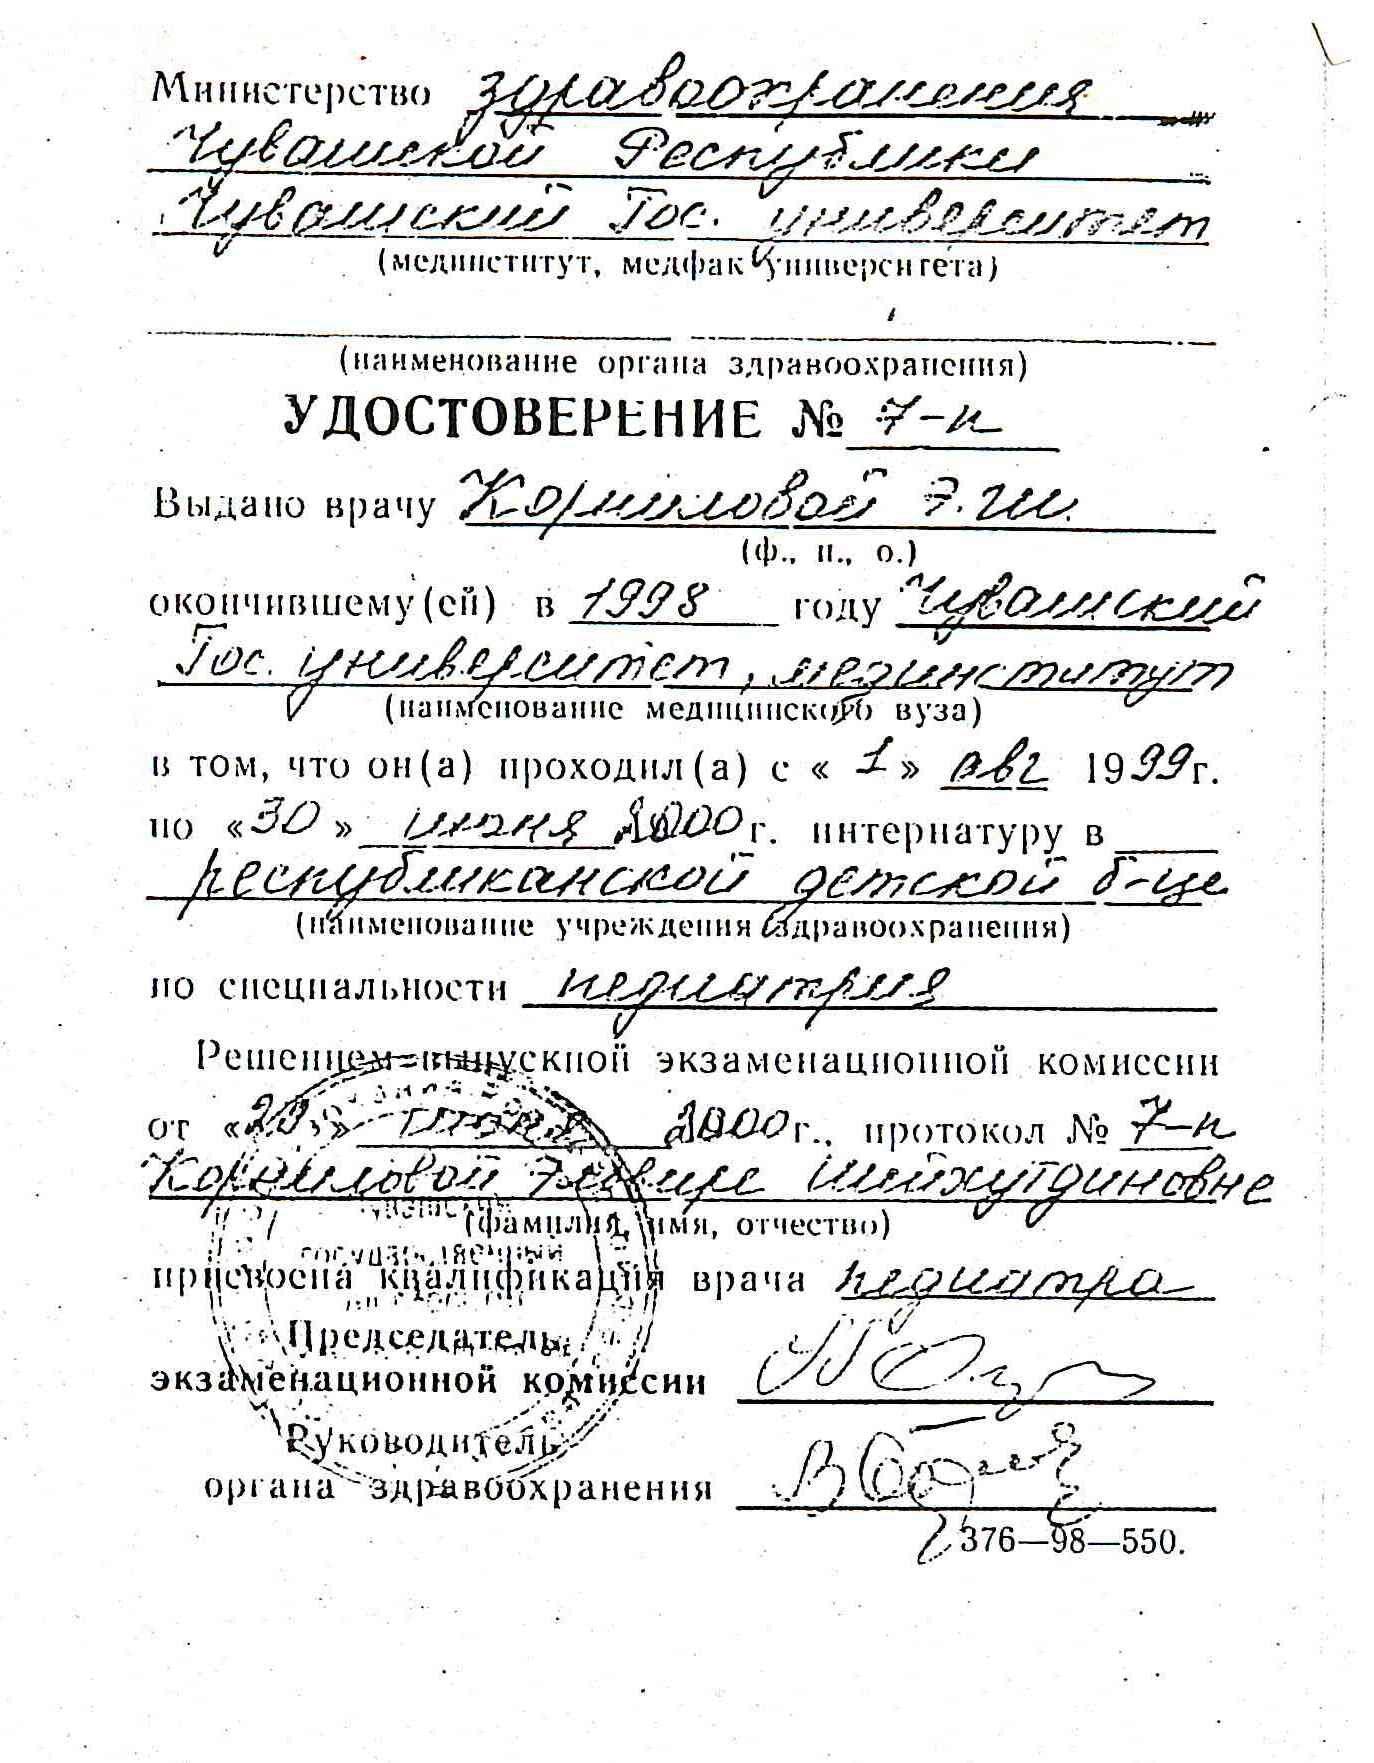 Министерство здравоохранения
Чувашской Республики
Чувашский Гос. университет
(мединститут, медфак университета)
(наименование органа здравоохранения)
УДОСТОВЕРЕНИЕ № 7-п
Выдано врачу Корниловой Э.Ш.
(ф., и., о.)
окончившему(ей) в 1998 году Чувашский
Гос. университет, мединститут
(наименование медицинского вуза)
в том, что он(а) проходил(а) с «1» авг 1999г.
по «30» июня 2000г. интернатуру в
республиканской детской б-це
(наименование учреждения здравоохранения)
по специальности педиатрия
Решением выпускной экзаменационной комиссии
от « » июня 2000г., протокол № 7-п
Корниловой Эльвире Шейхутдиновне
(фамилия, имя, отчество)
ГОСУДАРСТВЕННЫЙ
присвоена квалификация врача педиатра
Председатель
экзаменационной комиссии
Руководитель
органа здравоохранения
376—98—550.